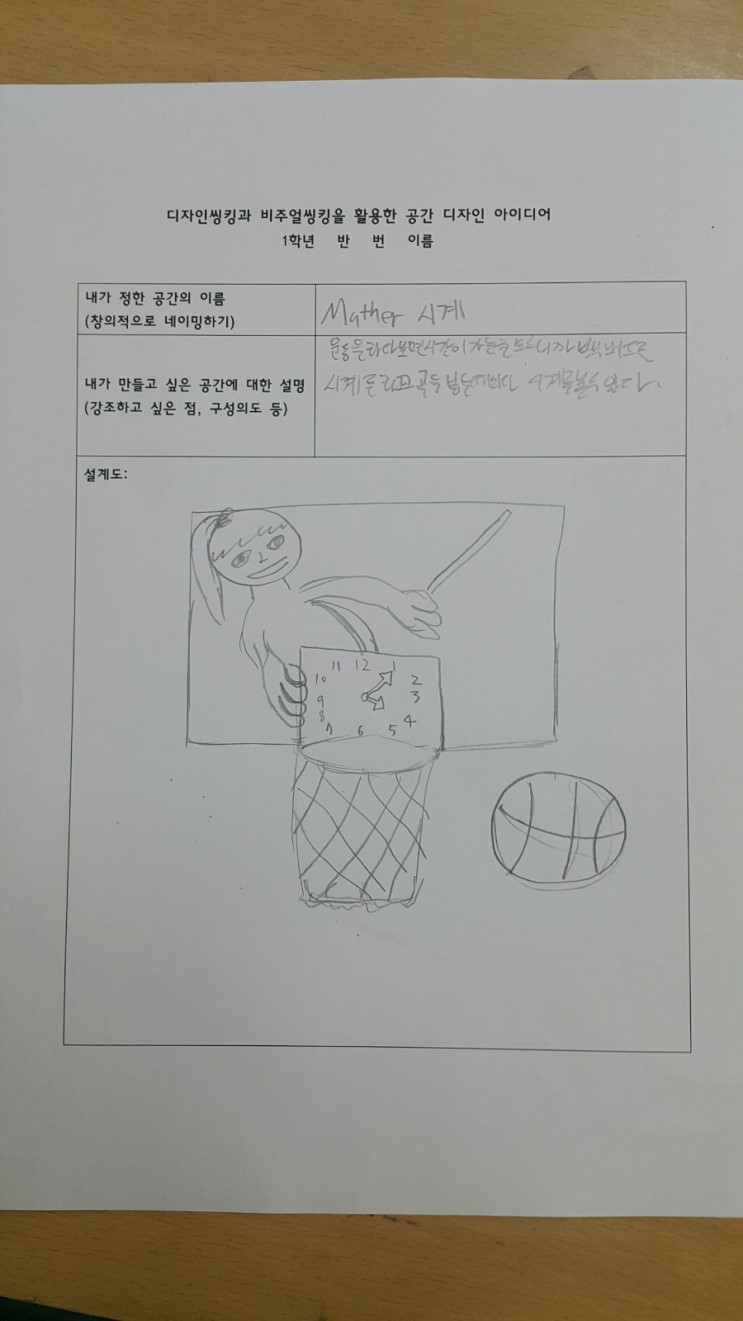 디자인씽킹과 비주얼씽킹을 활용한 공간 디자인 아이디어
1학년 반 번 이름
내가 정한 공간의 이름
(창의적으로 네이밍하기)
Mather 시계
내가 만들고 싶은 공간에 대한 설명
(강조하고 싶은 점, 구성의도 등)
운동을 하다보면 시간이 가는 줄
시계를 골을 넣는 때마다 시계를 볼 수 있다.
설계도:
11 12 1
10 2
9 3
8 4
7 6 5